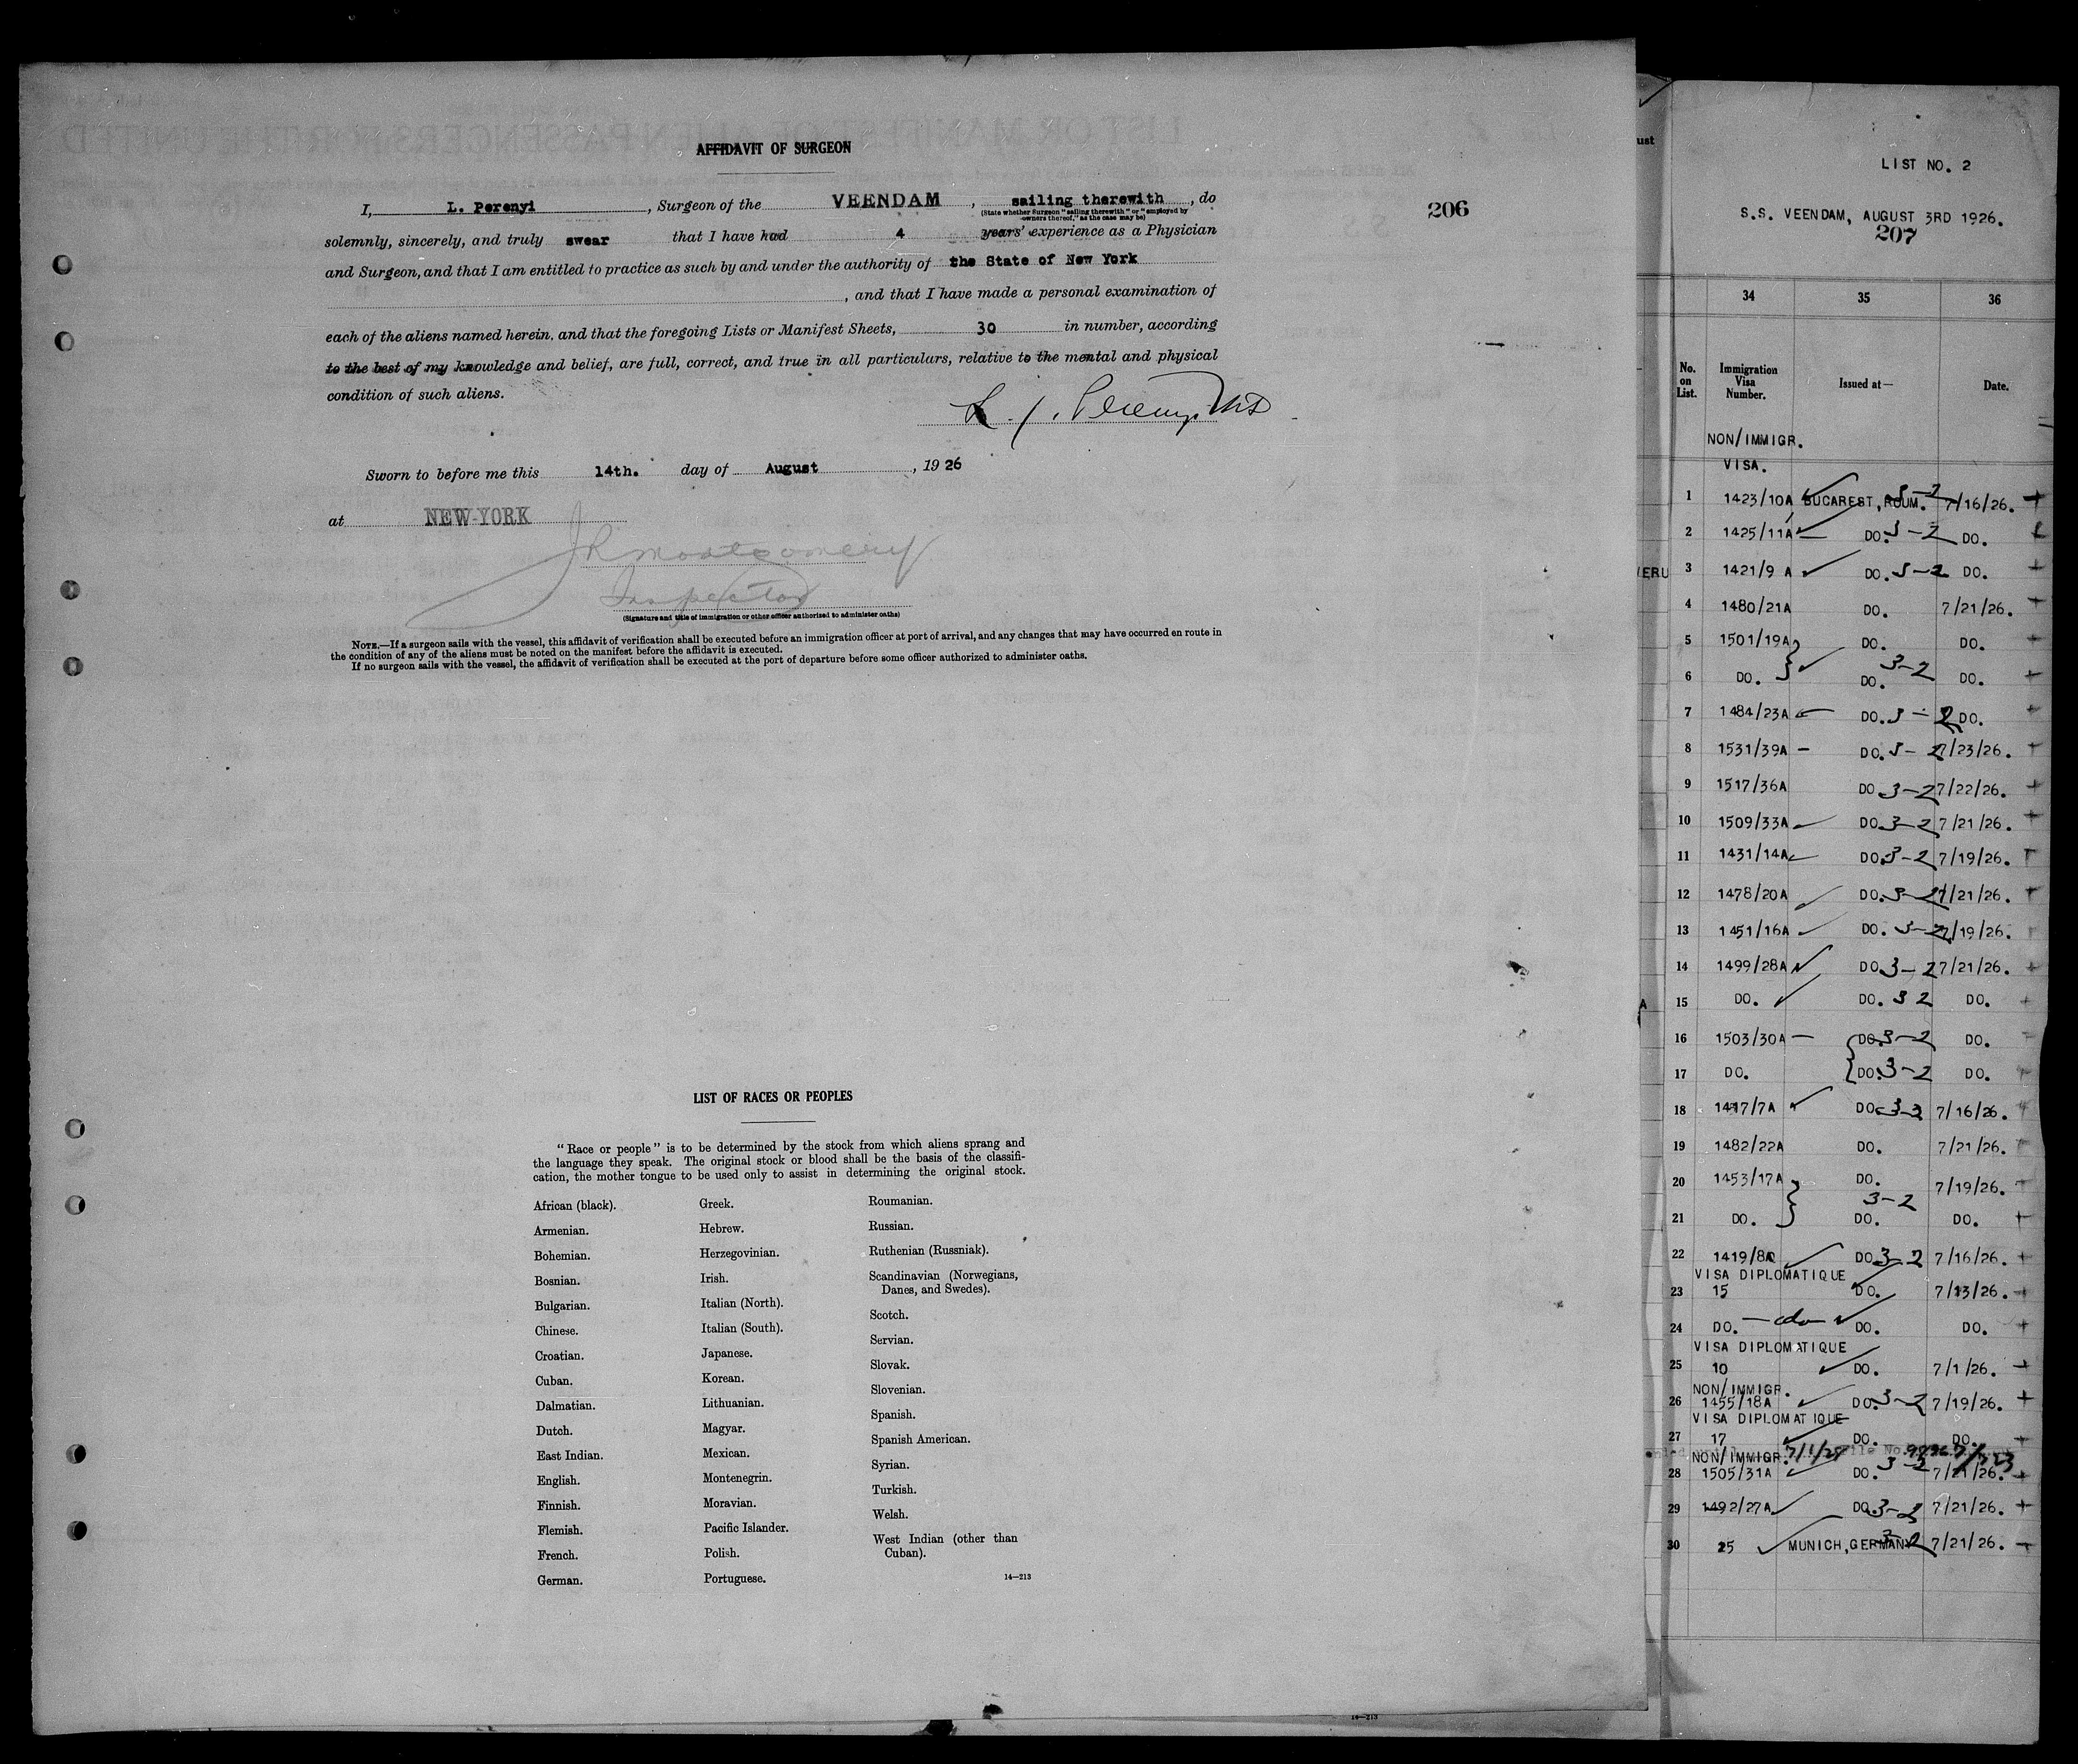 AFFIDAVIT OF SURGEON
I, L. Perenyi, Surgeon of the VEENDAM, sailing therewith, do
(State whether Surgeon "sailing therewith" or "employed by
owners thereof," as the case may be)
206
solemnly, sincerely, and truly swear that I have had 4 years' experience as a Physician
and Surgeon, and that I am entitled to practice as such by and under the authority of the State of New York
, and that I have made a personal examination of
each of the aliens named herein, and that the foregoing Lists or Manifest Sheets, 30 in number, according
to the best of my knowledge and belief, are full, correct, and true in all particulars, relative to the mental and physical
condition of such aliens.
L. J. Perenyi MD
Sworn to before me this 14th. day of August, 1926
at NEW-YORK
JRMontgomery
Inspector
(Signature and title of immigration or other officer authorized to administer oaths)
NOTE.—If a surgeon sails with the vessel, this affidavit of verification shall be executed before an immigration officer at port of arrival, and any changes that may have occurred en route in
the condition of any of the aliens must be noted on the manifest before the affidavit is executed.
If no surgeon sails with the vessel, the affidavit of verification shall be executed at the port of departure before some officer authorized to administer oaths.
LIST OF RACES OR PEOPLES
"Race or people" is to be determined by the stock from which aliens sprang and
the language they speak. The original stock or blood shall be the basis of the classifi-
cation, the mother tongue to be used only to assist in determining the original stock.
African (black).
Armenian.
Bohemian.
Bosnian.
Bulgarian.
Chinese.
Croatian.
Cuban.
Dalmatian.
Dutch.
East Indian.
English.
Finnish.
Flemish.
French.
German.
Greek.
Hebrew.
Herzegovinian.
Irish.
Italian (North).
Italian (South).
Japanese.
Korean.
Lithuanian.
Magyar.
Mexican.
Montenegrin.
Moravian.
Pacific Islander.
Polish.
Portuguese.
Roumanian.
Russian.
Ruthenian (Russniak).
Scandinavian (Norwegians,
Danes, and Swedes).
Scotch.
Servian.
Slovak.
Slovenian.
Spanish.
Spanish American.
Syrian.
Turkish.
Welsh.
West Indian (other than
Cuban).
14—213
LIST NO. 2
S.S. VEENDAM, AUGUST 3RD 1926.
207
34 35 36
No. on List. Immigration Visa Number. Issued at— Date.
NON/IMMIGR.
VISA.
1 1423/10A BUCAREST, ROUM. 3-2 7/16/26.
2 1425/11A DO. 3-2 DO.
3 1421/9 A DO. 3-2 DO.
4 1480/21A DO. 7/21/26.
5 1501/19A DO. DO.
3-2
6 DO. DO. DO.
7 1484/23A DO. 3-2 DO.
8 1531/39A DO. 3-2 7/23/26.
9 1517/36A DO 3-2 7/22/26.
10 1509/33A DO. 3-2 7/21/26.
11 1431/14A DO. 3-2 7/19/26.
12 1478/20A DO. 3-2 7/21/26.
13 1451/16A DO. 3-2 7/19/26.
14 1499/28A DO. 3-2 7/21/26.
15 DO. DO. 3 2 DO.
16 1503/30A DO. 3-2 DO.
17 DO. DO. 3-2 DO.
18 1417/7A DO 3-2 7/16/26.
19 1482/22A DO. 7/21/26.
20 1453/17A DO. 7/19/26.
3-2
21 DO. DO. DO.
22 1419/8A DO. 3-2 7/16/26.
VISA DIPLOMATIQUE
23 15 DO. 7/13/26.
24 DO. — do DO. DO.
VISA DIPLOMATIQUE
25 10 DO. 7/1/26.
NON/IMMIGR.
26 1455/18A DO. 3-2 7/19/26.
VISA DIPLOMATIQUE
27 17 DO. DO.
NON/IMMIGR. File No.
28 1505/31A DO. 3-2 7/21/26.
29 1492/27A DO. 3-2 7/21/26.
30 25 MUNICH, GERMANY 3-2 7/21/26.
14—213